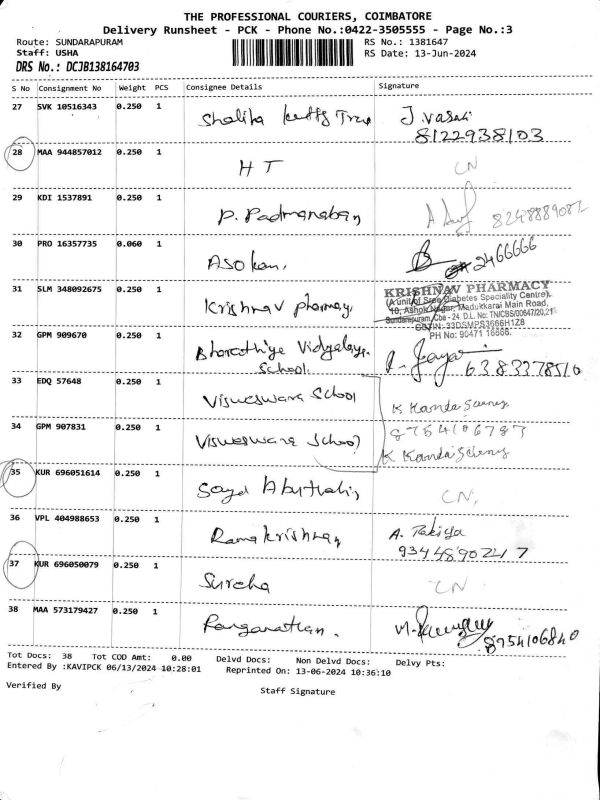 THE PROFESSIONAL COURIERS, COIMBATORE
Delivery Runsheet - PCK - Phone No.:0422-3505555 - Page No.:3
Route: SUNDARAPURAM RS No.: 1381647
Staff: USHA RS Date: 13-Jun-2024
DRS No.: DCJB138164703
S No Consignment No Weight PCS Consignee Details Signature
27 SVK 10516343 0.250 1 J. Vasaki
8122938103
28 MAA 944857012 0.250 1 HT CN
29 KDI 1537891 0.250 1 P. Padmanaban
30 PRO 16357735 0.060 1 Asokan, 2466666
31 SLM 348092675 0.250 1 Krishnav pharmacy
KRISHNAV PHARMACY
(A unit of Sree Diabetes Speciality Centre),
10, Ashok Nagar, Madukkarai Main Road,
Sundarapuram, Cbe - 24. D.L. No: TN/CBS/00647/20,21
GSTIN: 33DSMPS3666H1Z8
PH No: 90471 16666.
32 GPM 909670 0.250 1 Bharathiya Vidyalaya
School. 6383378510
33 EDQ 57648 0.250 1 Visweswara School K Kanda
34 GPM 907831 0.250 1 Visweswara School 8754106787
K Kanda
35 KUR 696051614 0.250 1 CN,
36 VPL 404988653 0.250 1 Ramakrishnan A.
9344890247
37 KUR 696050079 0.250 1 CN
38 MAA 573179427 0.250 1 Ranganathan. 8754106840
Tot Docs: 38 Tot COD Amt: 0.00 Delvd Docs: Non Delvd Docs: Delvy Pts:
Entered By :KAVIPCK 06/13/2024 10:28:01 Reprinted On: 13-06-2024 10:36:10
Verified By Staff Signature